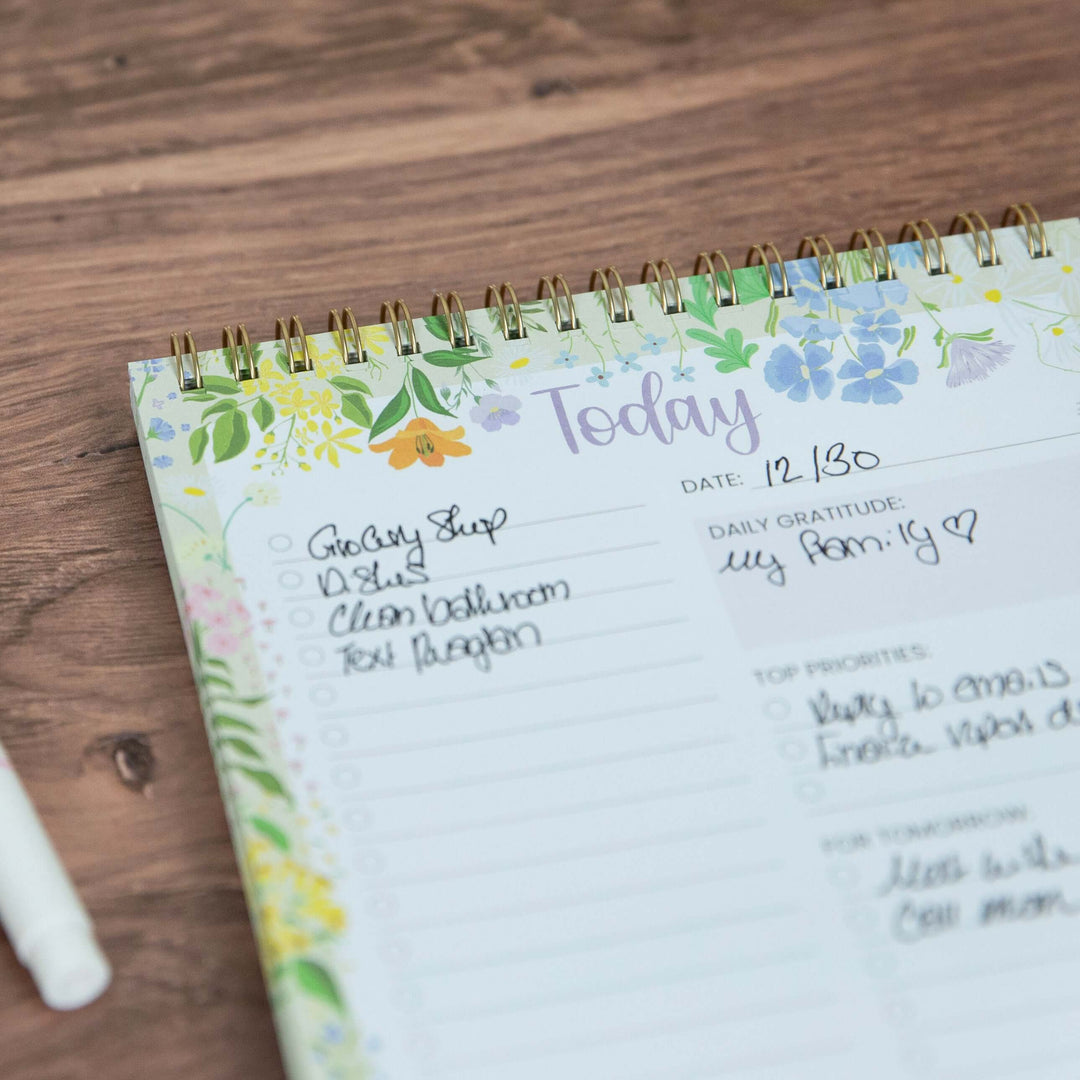 Today
DATE: 12/30
Grocery Shop
Dishes
Clean bathroom
Text Meagan
DAILY GRATITUDE:
My Family ♡
TOP PRIORITIES:
Reply to emails
report
FOR TOMORROW:
Meet with
Call mom